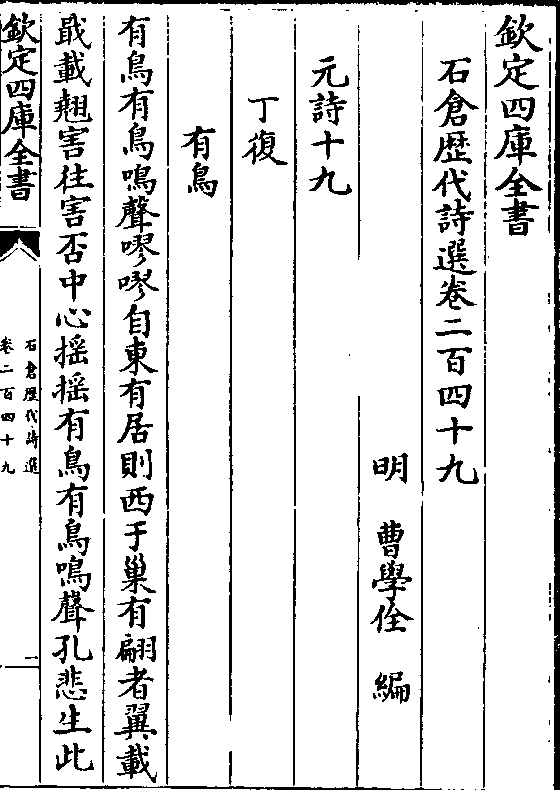 欽定四庫全書
石倉歴代詩選卷二百四十九
明 曹學佺 編
元詩十九
丁復
有鳥
有鳥有鳥鳴聲嘐嘐自東有居則西于巢有翩者翼載
戢載翹害往害否中心揺揺有鳥有鳥鳴聲孔悲生此
欽定四庫全書
石倉歴代詩選
卷二百四十九
一